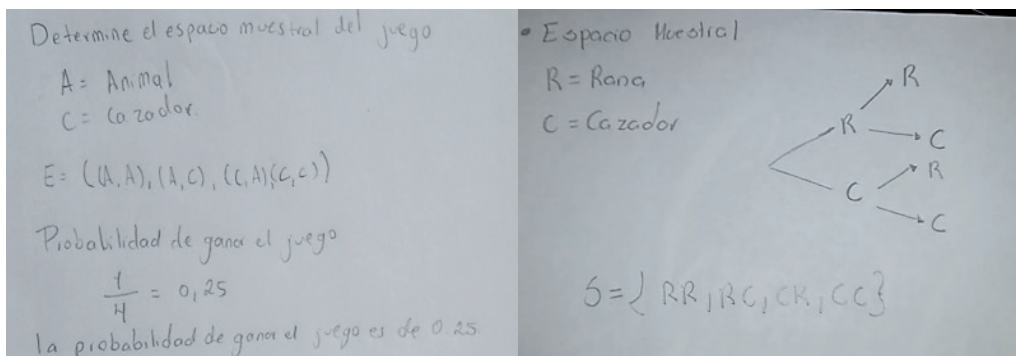 Determine el espacio muestral del juego
A = Animal
C = Cazador.
E = ((A,A),(A,C),(C,A),(C,C))
Probabilidad de ganar el juego
1/4 = 0,25
la probabilidad de ganar el juego es de 0.25
• Espacio Muestral
R = Rana
C = Cazador
R
R
C
R
C
C
S = { RR, RC, CR, CC}